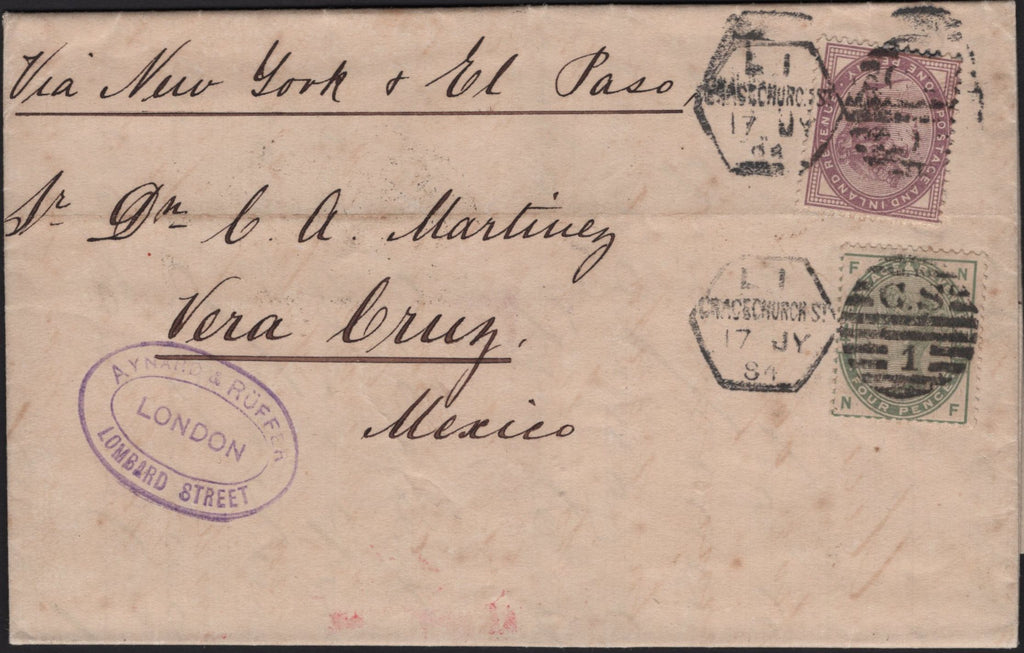 Via New York & El Paso
Sr Dn C. A. Martinez
Vera Cruz.
Mexico
AYNARD & RÜFFER
LONDON
LOMBARD STREET
L 1
GRACECHURCH ST
17 JY
84
POSTAGE AND INLAND REVENUE ONE PENNY
L 1
GRACECHURCH ST
17 JY
84
G.S
1
F N
FOUR PENCE
N F